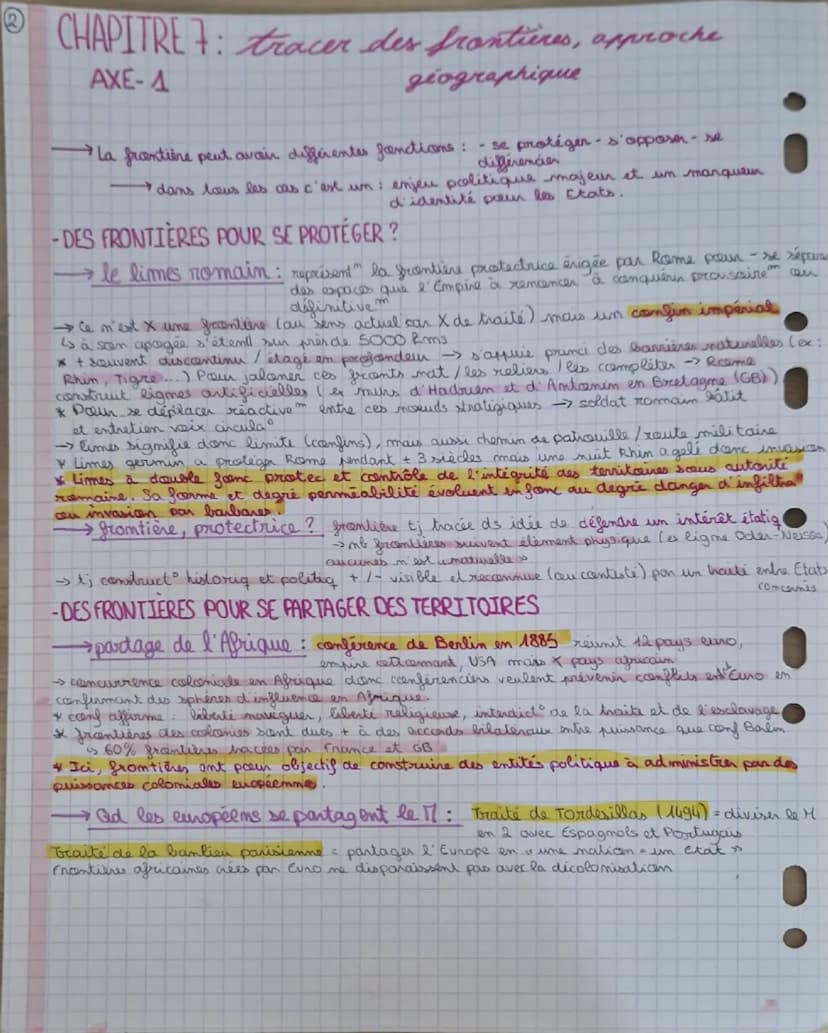 2
CHAPITRE 7 : tracer des frontières, approche
AXE-1 géographique
→ La frontière peut avoir différentes fonctions : - se protéger - s'opposer - se
différencier
→ dans tous les cas c'est un : enjeu politique majeur et un marqueur
d'identité pour les Etats.
- DES FRONTIÈRES POUR SE PROTÉGER ?
→ le limes romain : représent^m la frontière protectrice érigée par Rome pour - se sépare
des espaces que l'Empire à renoncer à conquérir provisoire^m ou
définitive^m
→ Ce n'est X une frontière (au sens actuel car X de traité) mais un confin impérial
↳ à son apogée s'étend sur près de 5000 kms
* + souvent discontinu / étagé en profondeur → s'appuie princi des barrières naturelles (ex :
Rhin, Tigre ...) Pour jalonner ces fronts nat / les reliers / les compléter → Rome
construit lignes artificielles (ex murs d'Hadrien et d'Antonin en Bretagne (GB))
* Pour se déplacer réactive^m entre ces nœuds stratégiques → soldat romain bâtit
et entretien voix circula°
→ limes signifie donc limite (confins), mais aussi chemin de patrouille / route militaire
* Limes germin a protégé Rome pendant + 3 siècles mais une nuit Rhin a gelé donc invasion
* Limes à double fonc protec et contrôle de l'intégrité des territoires sous autorité
romaine. Sa forme et degré perméabilité évoluent en fonc du degrée danger d'infiltra°
ou invasion par barbares.
→ frontière, protectrice ? frontière tj tracée ds idée de défendre un intérêt étatiq
→ nb frontières suivent élément physique (ex ligne Oder-Neisse)
aucunes n'est « naturelle »
→ tj construct° historiq et politiq + / - visible et reconnue (ou contesté) par un traité entre Etats
concernés
- DES FRONTIÈRES POUR SE PARTAGER DES TERRITOIRES
→ partage de l'Afrique : conférence de Berlin en 1885 réunit 12 pays euro,
empire ottomant, USA mais X pays africain
→ concurrence coloniale en Afrique donc conférenciers veulent prévenir conflits entre Euro en
confirmant des sphères d'influence en Afrique.
* conf affirme : liberté naviguer, liberté religieuse, interdict° de la traite et de l'esclavage
* frontières des colonies sont dues + à des accords bilatéraux entre puissance que conf Berlin
↳ 60% frontières tracées par France et GB
* Ici, frontières ont pour objectif de construire des entités politique à administrer par des
puissances coloniales européennes.
→ Qd les européens se partagent le M : Traité de Tordesillas (1494) = diviser le M
en 2 avec Espagnols et Portugais
Traité de la banlieu parisienne = partager l'Europe en « une nation = un Etat »
Frontières africaines crées par Euro ne disparaissent pas avec la décolonisation